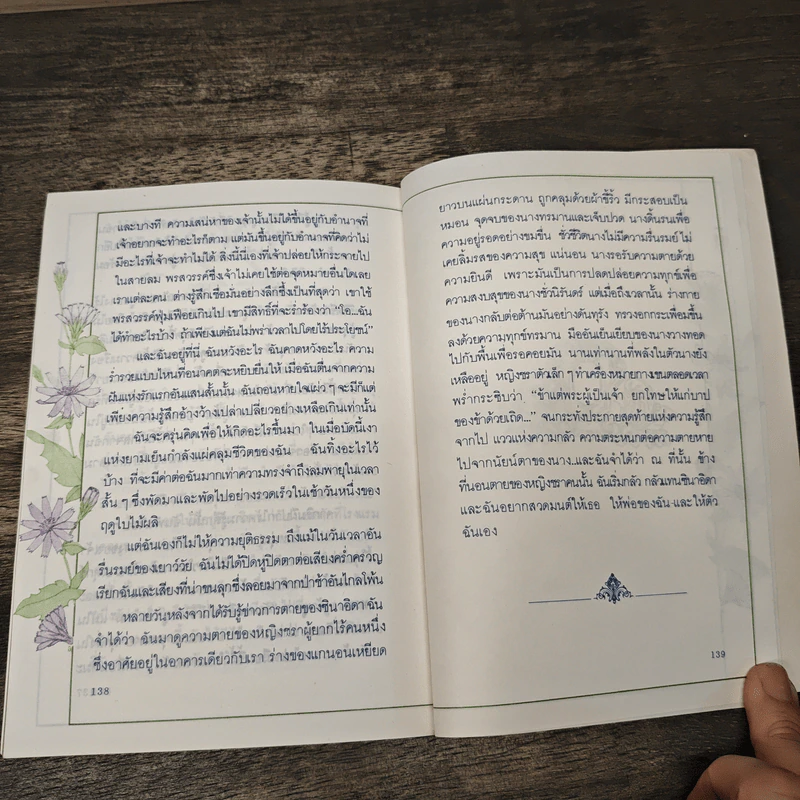 และบางที ความเสน่หาของเจ้านั้นไม่ได้ขึ้นอยู่กับอำนาจที่
เจ้าอยากจะทำอะไรก็ตาม แต่มันขึ้นอยู่กับอำนาจที่คิดว่าไม่
มีอะไรที่เจ้าจะทำไม่ได้ สิ่งนี้นี่เองที่เจ้าปล่อยให้กระจายไป
ในสายลม พรสวรรค์ซึ่งเจ้าไม่เคยใช้ต่อจุดหมายอื่นใดเลย
เราแต่ละคน ต่างรู้สึกเชื่อมั่นอย่างลึกซึ้งเป็นที่สุดว่า เขาใช้
พรสวรรค์ฟุ่มเฟือยเกินไป เขามีสิทธิ์ที่จะร่ำร้องว่า "โอ...ฉัน
ได้ทำอะไรบ้าง ถ้าเพียงแต่ฉันไม่พร่าเวลาไปโดยไร้ประโยชน์"
และฉันอยู่ที่นี่ ฉันหวังอะไร ฉันคาดหวังอะไร ความ
ร่ำรวยแบบไหนที่อนาคตจะหยิบยื่นให้ เมื่อฉันตื่นจากความ
ฝันแห่งรักแรกอันแสนสั้นนั้น ฉันถอนหายใจแผ่ว ๆ จะมีก็แต่
เพียงความรู้สึกอ้างว้างเปล่าเปลี่ยวอย่างเหลือเกินเท่านั้น
ฉันจะครุ่นคิดเพื่อให้เกิดอะไรขึ้นมา ในเมื่อบัดนี้เงา
แห่งยามเย็นกำลังแผ่คลุมชีวิตของฉัน ฉันทิ้งอะไรไว้
บ้าง ที่จะมีค่าต่อฉันมากเท่าความทรงจำถึงลมพายุในเวลา
สั้น ๆ ซึ่งพัดมาและพัดไปอย่างรวดเร็วในเช้าวันหนึ่งของ
ฤดูใบไม้ผลิ
แต่ฉันเองก็ไม่ให้ความยุติธรรม ถึงแม้ในวันเวลาอัน
รื่นรมย์ของเยาว์วัย ฉันไม่ได้ปิดหูปิดตาต่อเสียงคร่ำครวญ
เรียกฉันและเสียงที่น่าขนลุกซึ่งลอยมาจากป่าช้าอันไกลโพ้น
หลายวันหลังจากได้รับรู้ข่าวการตายของซินาอิดา ฉัน
จำได้ว่า ฉันมาดูความตายของหญิงชราผู้ยากไร้คนหนึ่ง
ซึ่งอาศัยอยู่ในอาคารเดียวกับเรา ร่างของแกนอนเหยียด
138
ยาวบนแผ่นกระดาน ถูกคลุมด้วยผ้าขี้ริ้ว มีกระสอบเป็น
หมอน จุดจบของนางทรมานและเจ็บปวด นางดิ้นรนเพื่อ
ความอยู่รอดอย่างขมขื่น ชั่วชีวิตนางไม่มีความรื่นรมย์ ไม่
เคยลิ้มรสของความสุข แน่นอน นางรอรับความตายด้วย
ความยินดี เพราะมันเป็นการปลดปล่อยความทุกข์เพื่อ
ความสงบสุขของนางชั่วนิรันดร์ แต่เมื่อถึงเวลานั้น ร่างกาย
ของนางกลับต่อต้านมันอย่างดันทุรัง ทรวงอกกระเพื่อมขึ้น
ลงด้วยความทุกข์ทรมาน มืออันเย็นเยียบของนางวางทอด
ไปกับพื้นเพื่อรอคอยมัน นานเท่านานที่พลังในตัวนางยัง
เหลืออยู่ หญิงชราตัวเล็ก ๆ ทำเครื่องหมายกางเขนตลอดเวลา
พร่ำกระซิบว่า "ข้าแต่พระผู้เป็นเจ้า ยกโทษให้แก่บาป
ของข้าด้วยเถิด..." จนกระทั่งประกายสุดท้ายแห่งความรู้สึก
จากไป แววแห่งความกลัว ความตระหนกต่อความตายหาย
ไปจากนัยน์ตาของนาง...และฉันจำได้ว่า ณ ที่นั้น ข้าง
ที่นอนตายของหญิงชราคนนั้น ฉันเริ่มกลัว กลัวแทนซินาอิดา
และฉันอยากสวดมนต์ให้เธอ ให้พ่อของฉัน และให้ตัว
ฉันเอง
139